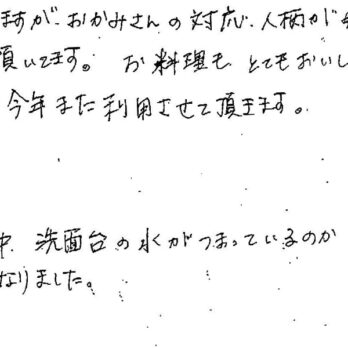 ますが、おかみさんの対応、人柄が
頂いてます。 お料理も とてもおいし
今年また利用させて頂きます。
洗面台の水がつまっているのか
なりました。